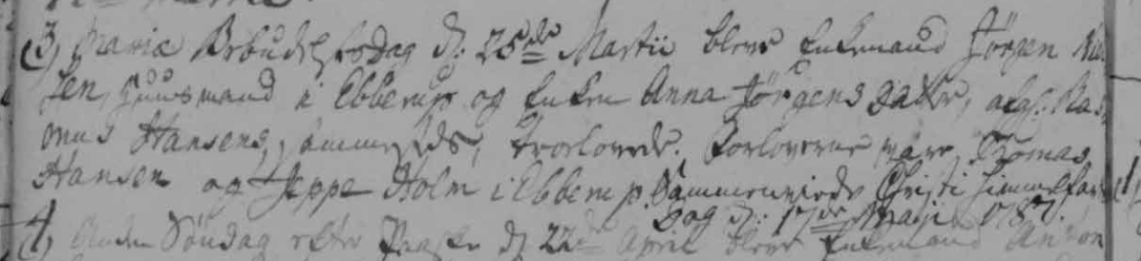 3, Mariæ Bebudelses Dag d: 25de Martii blev Enkemand Jörgen Niel-
sen, Huusmand i Ebberup og Enken Anna Jörgensdatter, afg: Ras-
mus Hansens, sammesteds, trolovede. Forloverne vare Thomas
Hansen og Jeppe Holm i Ebberup. Sammenviede Christi Himmelfarts
Dag d: 17de Maji 1787.
4, Anden Söndag efter Paaske d 22de April blev Enkemand Anton